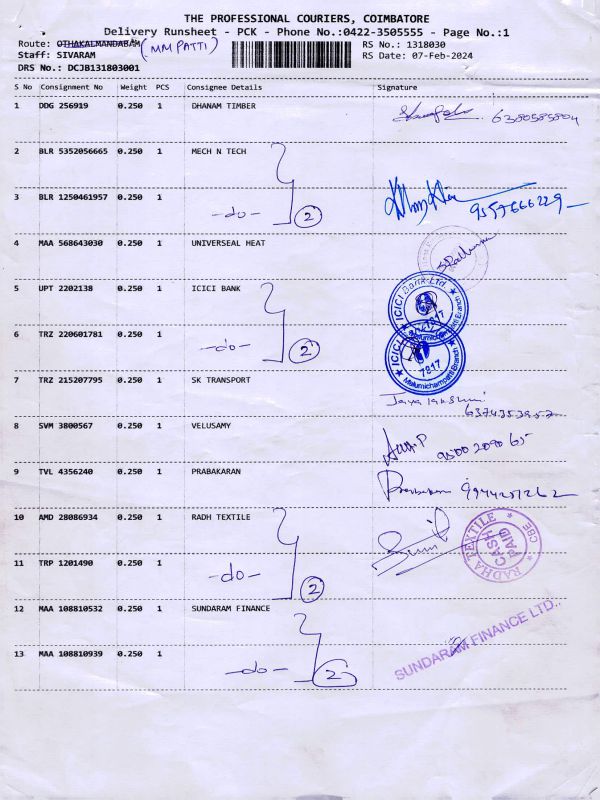 THE PROFESSIONAL COURIERS, COIMBATORE
Delivery Runsheet - PCK - Phone No.:0422-3505555 - Page No.:1
Route: OTHAKALMANDABAM (MM PATTI)
RS No.: 1318030
Staff: SIVARAM
RS Date: 07-Feb-2024
DRS No.: DCJB131803001
S No Consignment No Weight PCS Consignee Details Signature
1 DDG 256919 0.250 1 DHANAM TIMBER 6380585804
2 BLR 5352056665 0.250 1 MECH N TECH
3 BLR 1250461957 0.250 1 -do- 2 9359666229
4 MAA 568643030 0.250 1 UNIVERSEAL HEAT
5 UPT 2202138 0.250 1 ICICI BANK ICICI Bank Ltd
6 TRZ 220601781 0.250 1 -do- 2 7817 Malumichampatti Branch
7 TRZ 215207795 0.250 1 SK TRANSPORT
8 SVM 3800567 0.250 1 VELUSAMY 9500 2090 65
9 TVL 4356240 0.250 1 PRABAKARAN Prabakaran 9944251262
10 AMD 28086934 0.250 1 RADH TEXTILE RADHA TEXTILE CASH PAID CBE
11 TRP 1201490 0.250 1 -do- 2
12 MAA 108810532 0.250 1 SUNDARAM FINANCE
SUNDARAM FINANCE LTD.
13 MAA 108810939 0.250 1 -do- 2